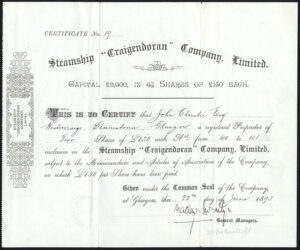 CERTIFICATE No. 19
Steamship "Craigendoran" Company, Limited.
CAPITAL £9,600, IN 64 SHARES OF £150 EACH.
THIS IS TO CERTIFY that John Esq
Glasgow is registered Proprietor of
Two Shares of £150 each Nos from 40 to 41
inclusive in the Steamship "Craigendoran" Company, Limited,
subject to the Memorandum and Articles of Association of the Company,
on which £150 per Share have been paid.
Given under the Common Seal of the Company
at Glasgow, this 22nd day of June 1893
General Managers.